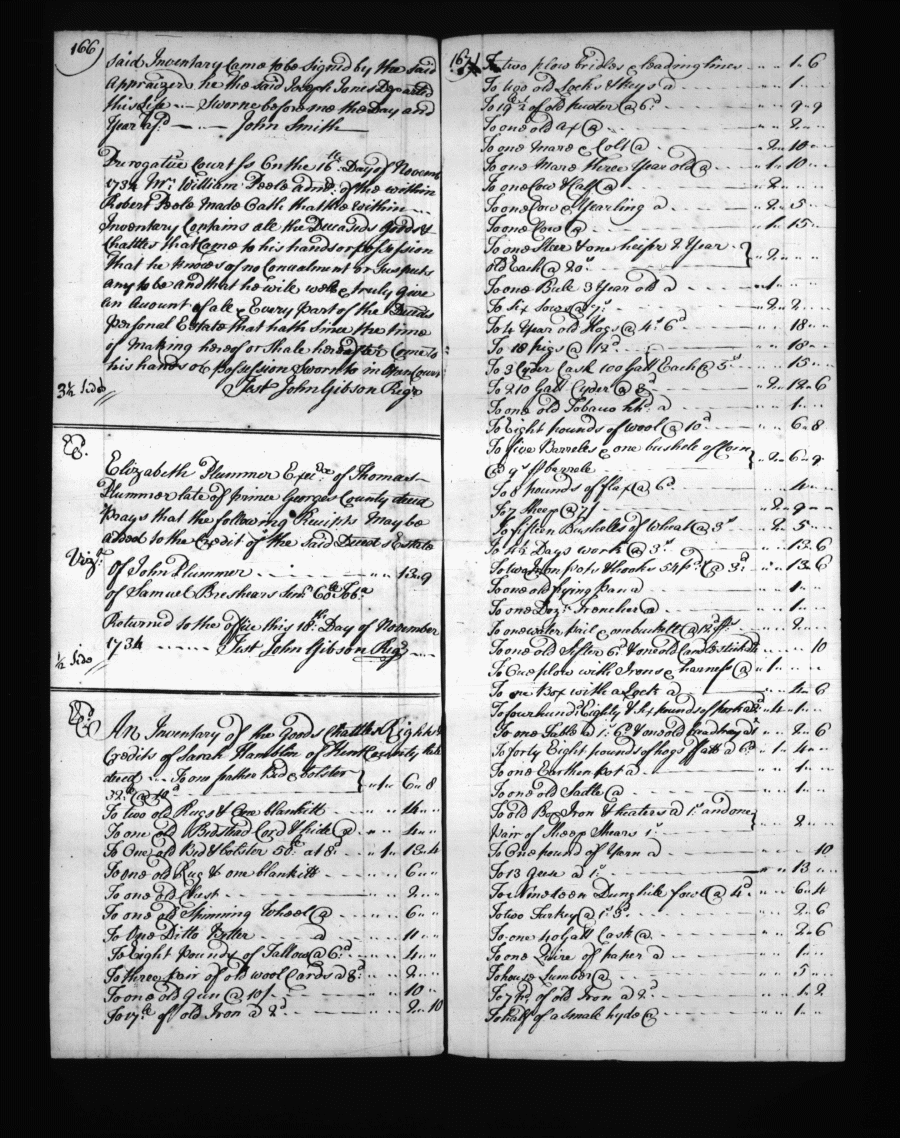 166
said Inventory Came to be Signed by the said
Appraizer he the said Joseph Jones Departed
this Life — Sworne before me the Day and
Year afsd — John Smith
Prerogative Court ss On the 16th Day of Novemr
1734 Mr William Peele admr of the within
Robert Peele Made Oath that the within
Inventory Contains all the Deceaseds Goods &
Chattles that Came to his hands or possession
that he knows of no Concealment or Suspects
any to be and that he will well & truly give
an Account of all & Every Part of the Deceds
Personal Estate that hath Since the time
of Making hereof or Shall hereafter Come to
his hands or possession Sworn to in Open Court
Test John Gibson Regr
3½ Sides
Exd.
Elizabeth Plummer Execrx of Thomas
Plummer late of prince Georges County deced
Prays that the following Receipts May be
added to the Credit of the said Deceds Estate
Vizt.
Of John Plummer - - - " " 13 " 9
of Samuel Breshears Senr 60 lb Toba
Returned to the office this 18th Day of November
1734 - - - Test John Gibson Regr
½ Side
Exd
An Inventory of the Goods Chattles Rights &
Credits of Sarah Hamilton of Kent County late
deced To one feather Bed & bolster
32lb @ 10d } " 1 " 6 " 8
To two old Rugs & One blankitt - - - " " 14 " "
To one old Bedstead Cord & hide @ - - " " 4 " "
To One old Bed & bolster 50lb at 8d - - " 1 " 13 " 4
To one old Rug & one blankitt - - - " " 6 " "
To one old Chest - - - " " 2 " "
To one old Spinning Wheel @ - - - " " 6 " "
To One Ditto Better a - - - " " 11 " "
To Eight Pounds of Tallow @ 6d - - " " 4 " "
To three pair of old wool Cards a 8d - - " " 2 " "
To one old Gun @ 10/ - - - " " 10 " "
To 17lb of old Iron a 2d - - - " " 2 " 10
167
To two plow bridles & leading lines - - " " 1 " 6
To two old Locks & Keys a - - - " " 1 " "
To 19½ of old pewter @ 6d - - - " " 9 " 9
To one old Ax @ - - - " " 2 " "
To one Mare & Colt @ - - - " 2 " 10 " "
To one Mare three Year old @ - - " 1 " 10 " "
To one Cow & Calf @ - - - " 2 " " "
To one Cow & Yearling a - - - " 2 " 5 " "
To one Cow @ - - - " 1 " 15 " "
To one Stear & one heifer 2 Year
old Each @ 20s } " 2 " " "
To one Bull 3 Year old a - - - " 1 " " "
To Six Sows @ 7s - - - " 2 " 2 " "
To 4 Year old Hogs @ 4s 6d - - " " 18 " "
To 18 pigs @ 12d - - - " " 18 " "
To 3 Cyder Cask 100 Gall Each @ 5s - - " " 15 " "
To 210 Gall Cyder @ 3d - - - " 2 " 12 " 6
To one old Tobacco hhd a - - - " " 1 " "
To Eight pounds of wool @ 10d - - " " 6 " 8
To five Barrels & one bushele of Corn
@ 9s p barrele } " 2 " 6 " 9
To 8 pounds of flax @ 6d - - - " " 4 " "
To 7 Sheep @ 7/ - - - " 2 " 9 " "
To fifteen Bushells of Wheat @ 3s - - " 2 " 5 " "
To 4½ Days work @ 3s - - - " " 13 " 6
To two Iron pots & hooks 54 pds @ 3d - - " " 13 " 6
To one old frying Pan a - - - " " 1 " "
To one Dozn Trenchers @ - - - " " 1 " "
To one water pail & one buckett @ 12d ps - - " " 2 " "
To one old Sifter 6d & one old Candlestick 4d " " " 10
To One plow with Irons & harness @ " 1 " " "
To one Box with a Lock a - - - " " 4 " 6
To four hundd Eighty & Six pounds of pork a 2d " 4 " 1 " "
To one Table at 1s 6d & one old bread tray a 1s " " 2 " 6
To forty Eight pounds of hogs fatt a 6d - - " 1 " 4 " "
To one Earthen pot a - - - " " 1 " "
To one old Sadle @ - - - " " 1 " "
To old Box Iron & heaters a 1s and one
pair of Sheep Shears 1s } " " 2 " "
To One pound of Yarn a - - - " " " 10
To 13 Geese a 1s - - - " " 13 " "
To Nineteen Dunghile fowl @ 4d - - " " 6 " 4
To two Turkey @ 1s 3d - - - " " 2 " 6
To one 40 Gall Cask @ - - - " " 2 " 6
To one Quire of paper a - - - " " 1 " "
To house Lumber @ - - - " " 5 " "
To 7 pds of old Iron a 2d - - - " " 1 " 2
To half of a smale hyde @ - - - " " 1 " "